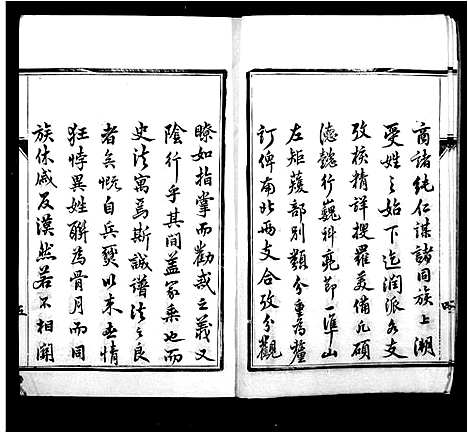 商諸純仁謀諸同族上溯
受姓之始下迄潤派各支
攷核精詳搜羅美備凡碩
德懿行巍科亮節一準山
左矩蒦部別類分重為釐
訂俾南北兩支合攷分觀
瞭如指掌而勸戒之義又
陰行乎其間蓋冢乘也而
史法寓焉斯誠譜法之良
者矣慨自兵燹以來世情
狂悖異姓聯為骨月而同
族休戚反漠然若不相關